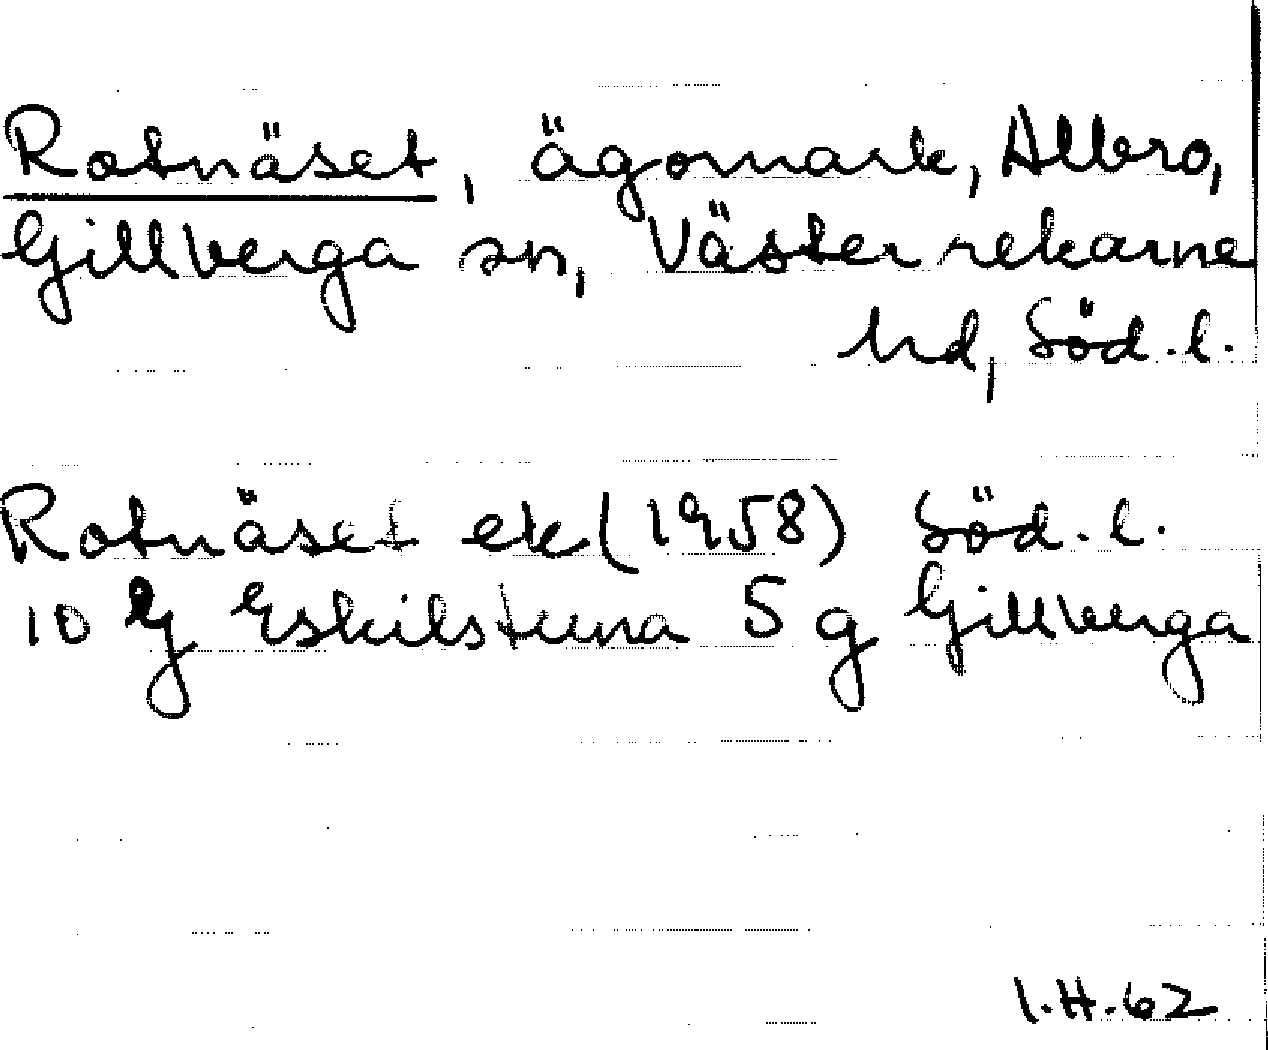 Rotnäset, ägomark, Albro,
Gillberga sn, Västerrekarne
hd, Söd. l.
Rotnäset ek (1958) Söd. l.
10 G Eskilstuna 5 g Gillberga
I.H.62